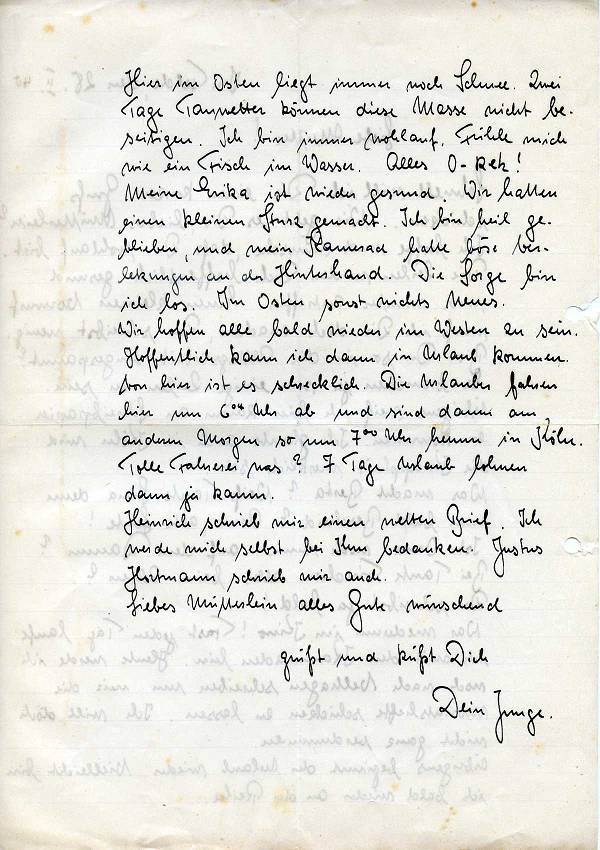 Hier im Osten liegt immer noch Schnee. Zwei
Tage Tauwetter können diese Masse nicht be-
seitigen. Ich bin immer wohlauf. Fühle mich
wie ein Fisch im Wasser. Alles O-Keh!
Meine Erika ist wieder gesund. Wir hatten
einen kleinen Sturz gemacht. Ich bin heil ge-
blieben, und mein Kamerad hatte böse Ver-
letzungen an der Hinterhand. Die Sorge bin
ich los. Im Osten sonst nichts Neues.
Wir hoffen alle bald wieder im Westen zu sein.
Hoffentlich kann ich dann in Urlaub kommen.
Von hier ist es schrecklich. Die Urlauber fahren
hier um 6⁰⁴ Uhr ab und sind dann am
anderen Morgen so um 7⁰⁰ Uhr herum in Köln.
Tolle Fahrerei was? 7 Tage Urlaub lohnen
dann ja kaum.
Heinrich schrieb mir einen netten Brief. Ich
werde mich selbst bei Ihm bedanken. Justus
Hortmann schrieb mir auch.
Liebes Mütterlein alles Gute wünschend
grüßt und küßt Dich
Dein Junge.